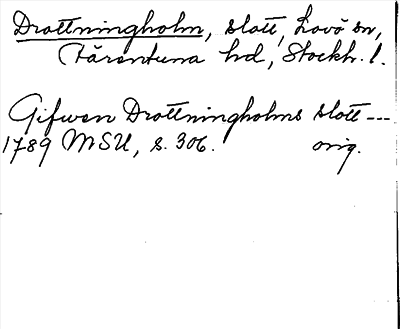 Drottningholm, slott, Lovö sn,
Färentuna hd, Stockh. l.
Gifwen Drottningholms slott ---
1789 MSU, s. 306. orig.